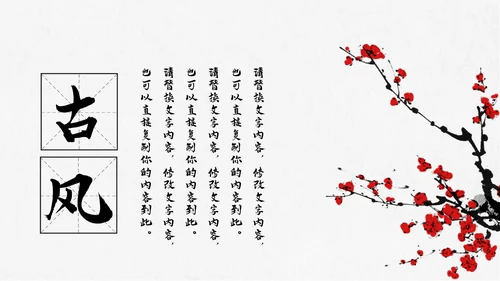 古风
请替换文字内容，修改文字内容，
也可以直接复制你的内容到此。
请替换文字内容，修改文字内容，
也可以直接复制你的内容到此。
请替换文字内容，修改文字内容，
也可以直接复制你的内容到此。